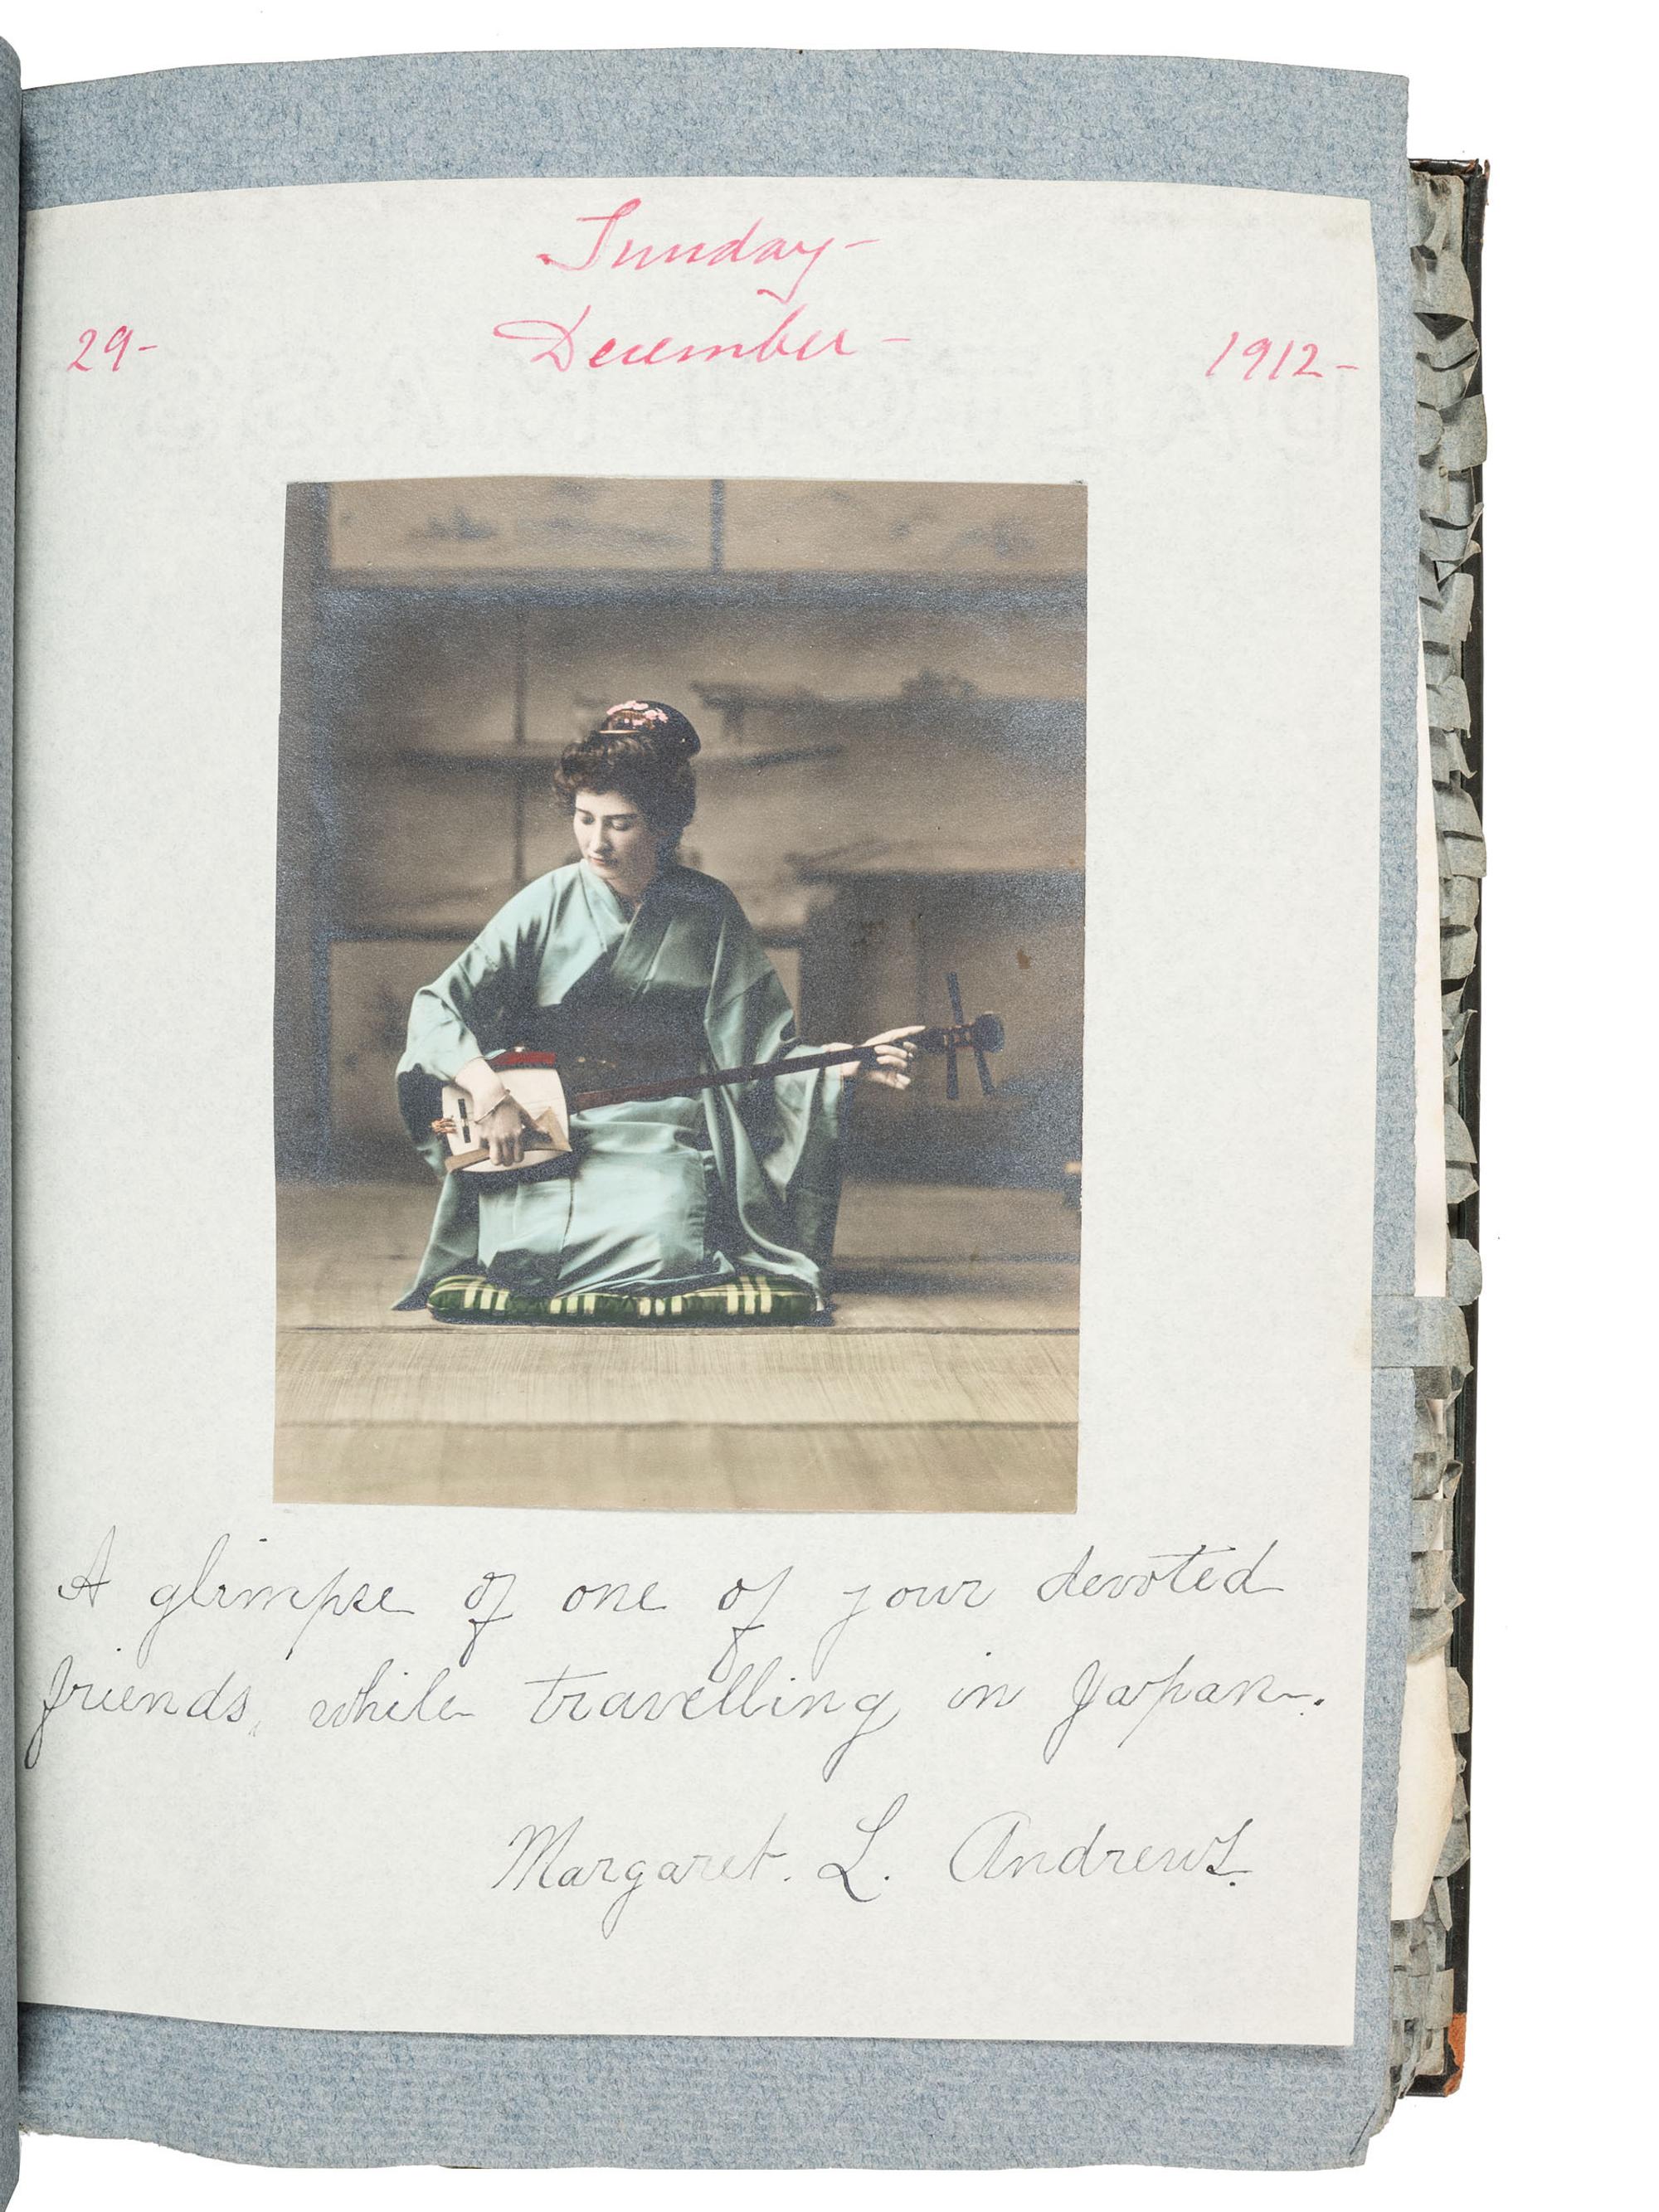 Sunday-
29- December- 1912-
A glimpse of one of your devoted
friends, while travelling in Japan.
Margaret. L. Andrews.